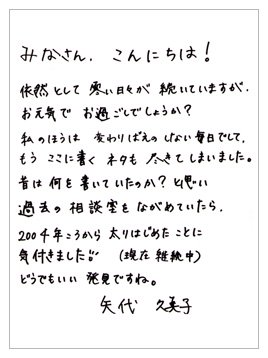 みなさん、こんにちは！
依然として寒い日々が続いていますが、
お元気でお過ごしでしょうか？
私のほうは変わりばえのしない毎日でして、
もうここに書くネタも尽きてしまいました。
昔は何を書いていたのか？と思い
過去の相談室をながめていたら、
2004年ころから太りはじめたことに
気付きました!!（現在継続中）
どうでもいい発見ですね。
矢代 久美子